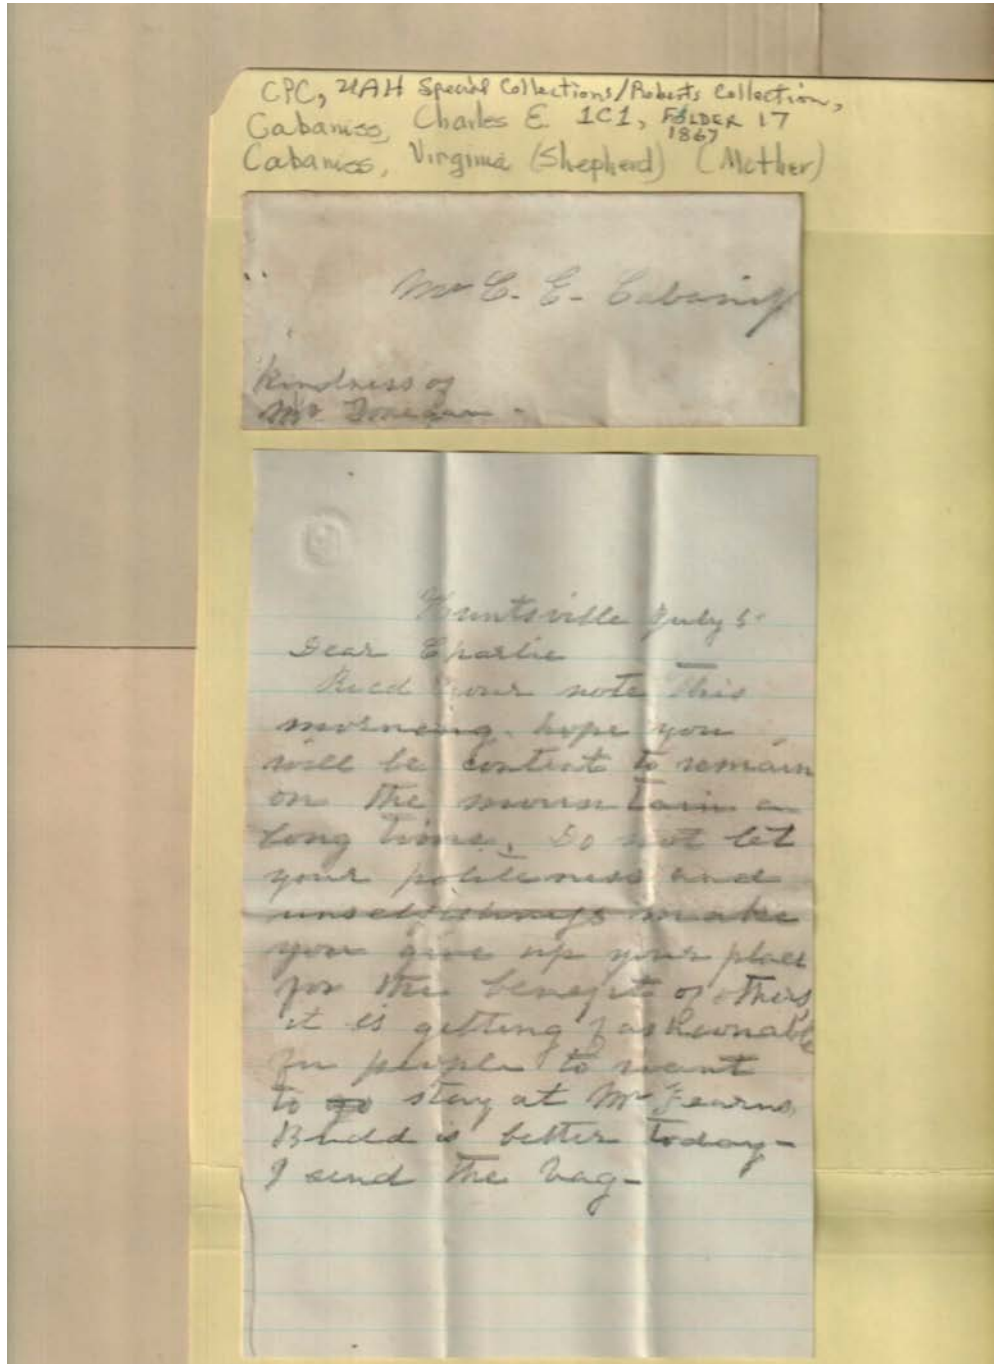 CPC, UAH Special Collections/Roberts Collection,
Cabaniss, Charles E. 1C1, FOLDER 17
1867
Cabaniss, Virginia (Shepherd) (Mother)
Mr C. E. Cabaniss
Kindness of
Mr Donegan -
Huntsville July 5
Dear Charlie
Recd your note this
morning. hope you
will be content to remain
on the mountain a
long time. Do not let
your politeness and
unselfishness make
you give up your place
for the benefit of others,
it is getting fashionable
for people to want
to go stay at Mr Fearns,
Budd is better today -
I send the bag -